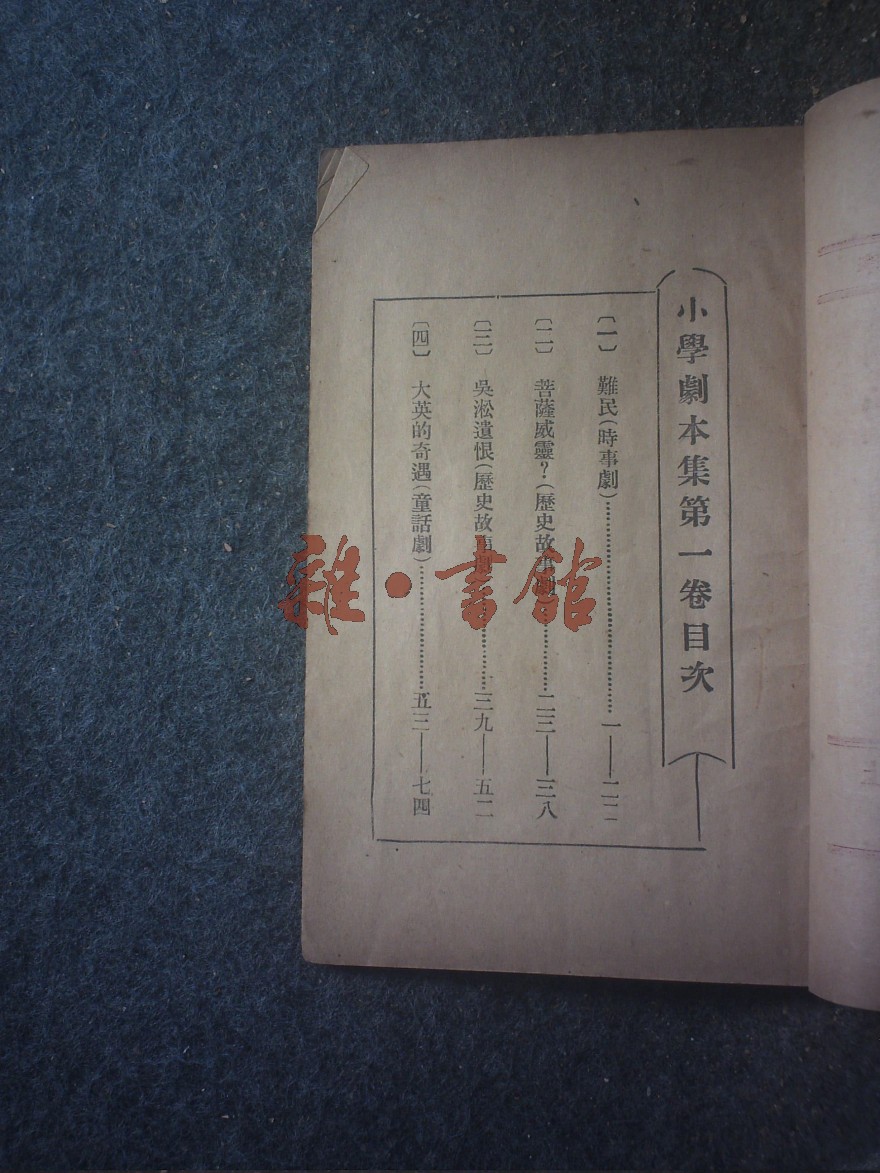 小學劇本集第一卷目次
〔一〕 難民(時事劇)……………………一——二二
〔二〕 菩薩威靈?(歷史故事劇)…………二三——三八
〔三〕 吳淞遺恨(歷史故事劇)……………三九——五二
〔四〕 大英的奇遇(童話劇)………………五三——七四
雜·書館